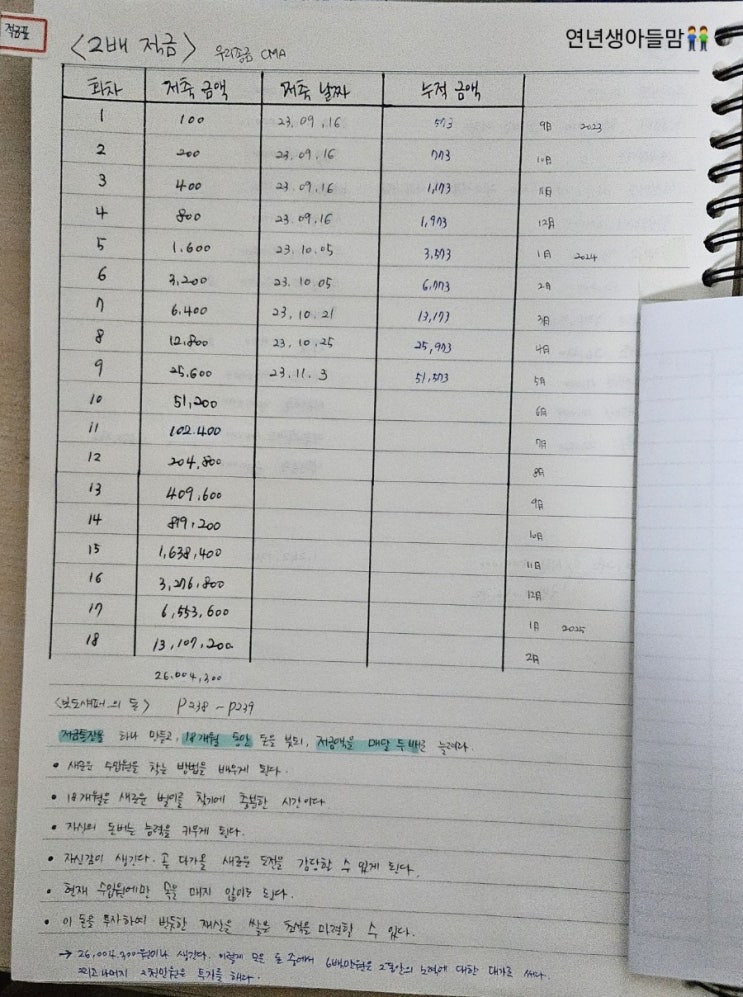 적금표
연년생아들맘
<2배 적금> 우리종금 CMA
회차 저축 금액 저축 날짜 누적 금액
1 100 23.09.16 573 9月 2023
2 200 23.09.16 773 10月
3 400 23.09.16 1,173 11月
4 800 23.09.16 1,973 12月
5 1.600 23.10.05 3,573 1月 2024
6 3,200 23.10.05 6,773 2月
7 6.400 23.10.21 13,173 3月
8 12,800 23.10.25 25,973 4月
9 25,600 23.11.3 51,573 5月
10 51,200 6月
11 102.400 7月
12 204,800 8月
13 409,600 9月
14 819,200 10月
15 1,638,400 11月
16 3,276,800 12月
17 6,553,600 1月 2025
18 13,107,200 2月
26.004,300
<보도섀퍼의 돈> P238 - P239
저금통장을 하나 만들고, 18개월 동안 돈을 붓되, 저금액을 매달 두배로 늘려라.
• 새로운 수입원을 찾는 방법을 배우게 된다.
• 18개월은 새로운 벌이를 찾기에 충분한 시간이다
• 자신의 돈버는 능력을 키우게 된다.
• 자신감이 생긴다. 곧 다가올 새로운 도전을 감당할 수 있게 된다.
• 현재 수입원에만 목을 매지 않아도 된다.
• 이 돈을 투자하여 번듯한 재산을 쌓을 초석을 마련할 수 있다.
→ 26,004.300원이나 생긴다. 이렇게 모은 돈 중에서 6백만원은 그동안의 노력에 대한 대가로 써라.
그리고 나머지 2천만원은 투자를 해라.